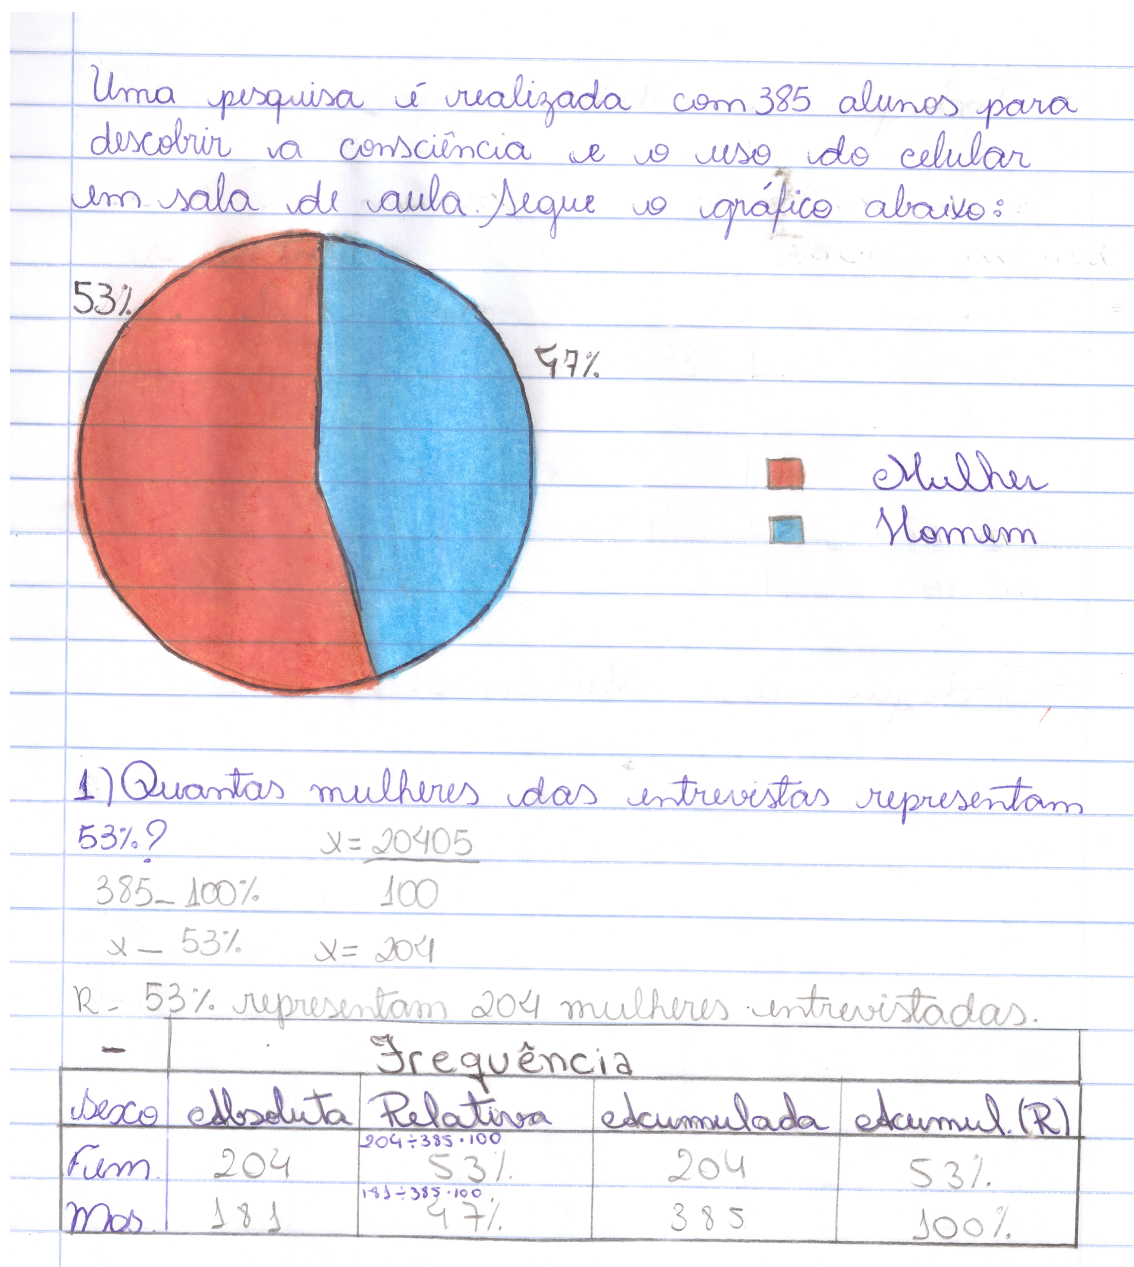 Uma pesquisa é realizada com 385 alunos para
descobrir a consciência e o uso do celular
em sala de aula. Segue o gráfico abaixo:
53%
47%
Mulher
Homem
1) Quantas mulheres das entrevistas representam
53%?
x = 20405
385 _ 100%
100
x _ 53%
x = 204
R - 53% representam 204 mulheres entrevistadas.
- Frequência
Sexo Absoluta Relativa Acumulada Acumul. (R)
204÷385·100
Fem. 204 53% 204 53%
181÷385·100
Mas. 181 47% 385 100%